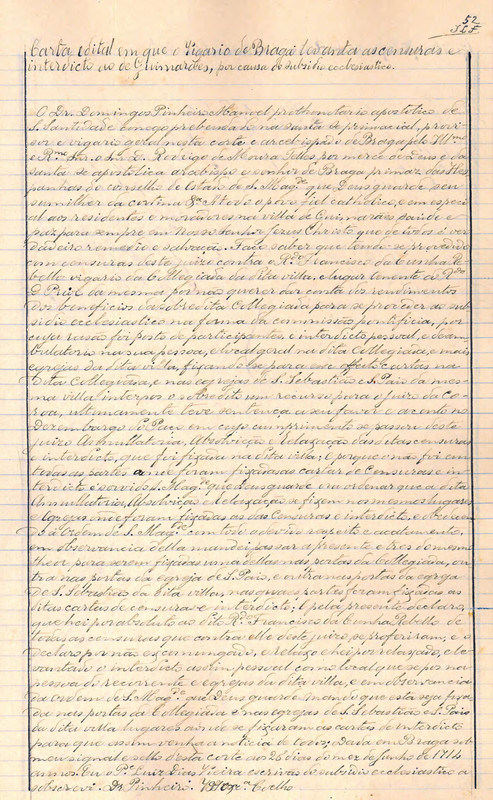 52
Carta edital em que o Vigario de Braga levanta as censuras e
interdicto ao de Guimarães, por causa do subsidio ecclesiastico.
O Dr. Domingos Pinheiro Manoel prothonotario apostolico de
S. Santidade conego prebendado na santa se primacial, provi-
sor e vigario geral nesta corte e arcebispado de Braga pelo Illmo
e Rmo Snr. o Snr. D. Rodrigo de Moura Telles por merce de Deus e da
santa se apostolica arcebispo e senhor de Braga primaz das Hes-
panhas do conselho de estado de S. Magde que Deus guarde seu
sumilher da cortina &a A todo o povo fiel catholico, e em especi-
al aos residentes e moradores na villa de Guimarães saude e
paz para sempre em Nosso Senhor Jesus Christo que de todos é ver-
dadeiro remedio e salvação. Faço saber que tendo-se procedido
com censuras deste juizo contra o Rdo Francisco da Cunha Re-
bello vigario da Collegiada da dita villa, e lugar tenente do Rdo
D. Prior da mesma por não querer dar conta dos rendimentos
dos beneficios da sobredita Collegiada para se proceder ao sub-
sidio ecclesiastico na forma da commissão pontificia, por
cuja rasão foi posto de participantes, e interdicto pessoal, e deam-
bulatorio na sua pessoa, e local geral na dita Collegiada, e mais
egrejas da dita villa, fixando-se para esse effeito cartas na
dita Collegiada, e nas egrejas de S. Sebastião e S. Paio da mes-
ma villa interpos o sobredito um recurso para o juizo da Co-
roa, ultimamente teve sentença a seu favor e acento no
Dezembargo do Paço em cujo cumprimento se passou deste
juizo Annullatoria, Absolvição e Relaxação das ditas censuras
e interdicto, que foi fixada na dita villa; e porque o não foi em
todas as partes aonde foram fixadas as cartas de Censuras e in-
terdicto e servido S. Magde que Deus guarde ordenar que a dita
Annullatoria, Absolvição e Relaxação se fixem nos mesmos lugares
e Egrejas onde foram fixadas as das Censuras e interdicto, e obedecen-
do á Ordem de S. Magde com todo o devido respeito e acatamento,
em observancia della mandei passar a presente e tres do mesmo
theor para serem fixadas uma dellas nas portas da Collegiada, ou-
tra nas portas da egreja de S. Paio, e outra nas portas da egreja
de S. Sebastião da dita villa, nas quaes partes foram fixadas as
ditas cartas de censuras e interdicto; E pela presente declaro,
que hei por absoluto ao dito Rdo Francisco da Cunha Rebello de
todas as censuras que contra elle deste juizo se proferiram, e o
declaro por não excomungado, e relaxo e hei por relaxado, e le-
vantado o interdicto assim pessoal como local que se pos na
pessoa do recorrente e egrejas da dita villa, e em observancia
da ordem de S. Magde que Deus guarde mando que esta seja fixa-
da nas portas da Collegiada e nas egrejas de S. Sebastião e S. Paio
da dita villa lugares aonde se fixaram as cartas de interdicto
para que assim venha a noticia de todos; Dada em Braga sob
meu signal e sello desta corte aos 25 dias do mez de Junho de 1714
annos. Eu o Pe Luiz Dias Vieira escrivão do subsidio ecclesiastico a
sobscrevi. Dr. Pinheiro. Coelho